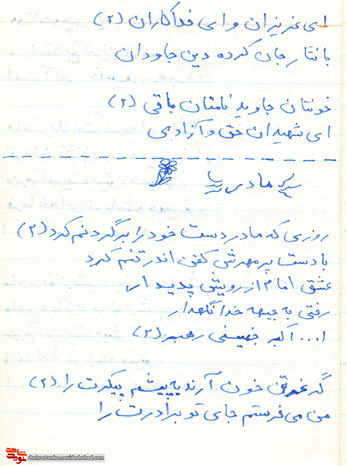 ای عزیزان و ای فداکاران (۲)
با نثار جان کرده دین جاودان
خونتان جاوید نامتان باقی (۲)
ای شهیدان حق و آزادی
مادر
روزی که مادر دست خود را بر گردنم کرد (۲)
با دست پر مهرش کفن اندر تنم کرد
عشق امام از رویش پدیدار
رفتی به جبهه خدا نگهدار
ا... اکبر خمینی رهبر (۲)
گر غرق خون آرند به پیشم پیکرت را (۲)
من می فرستم جای تو برادرت را